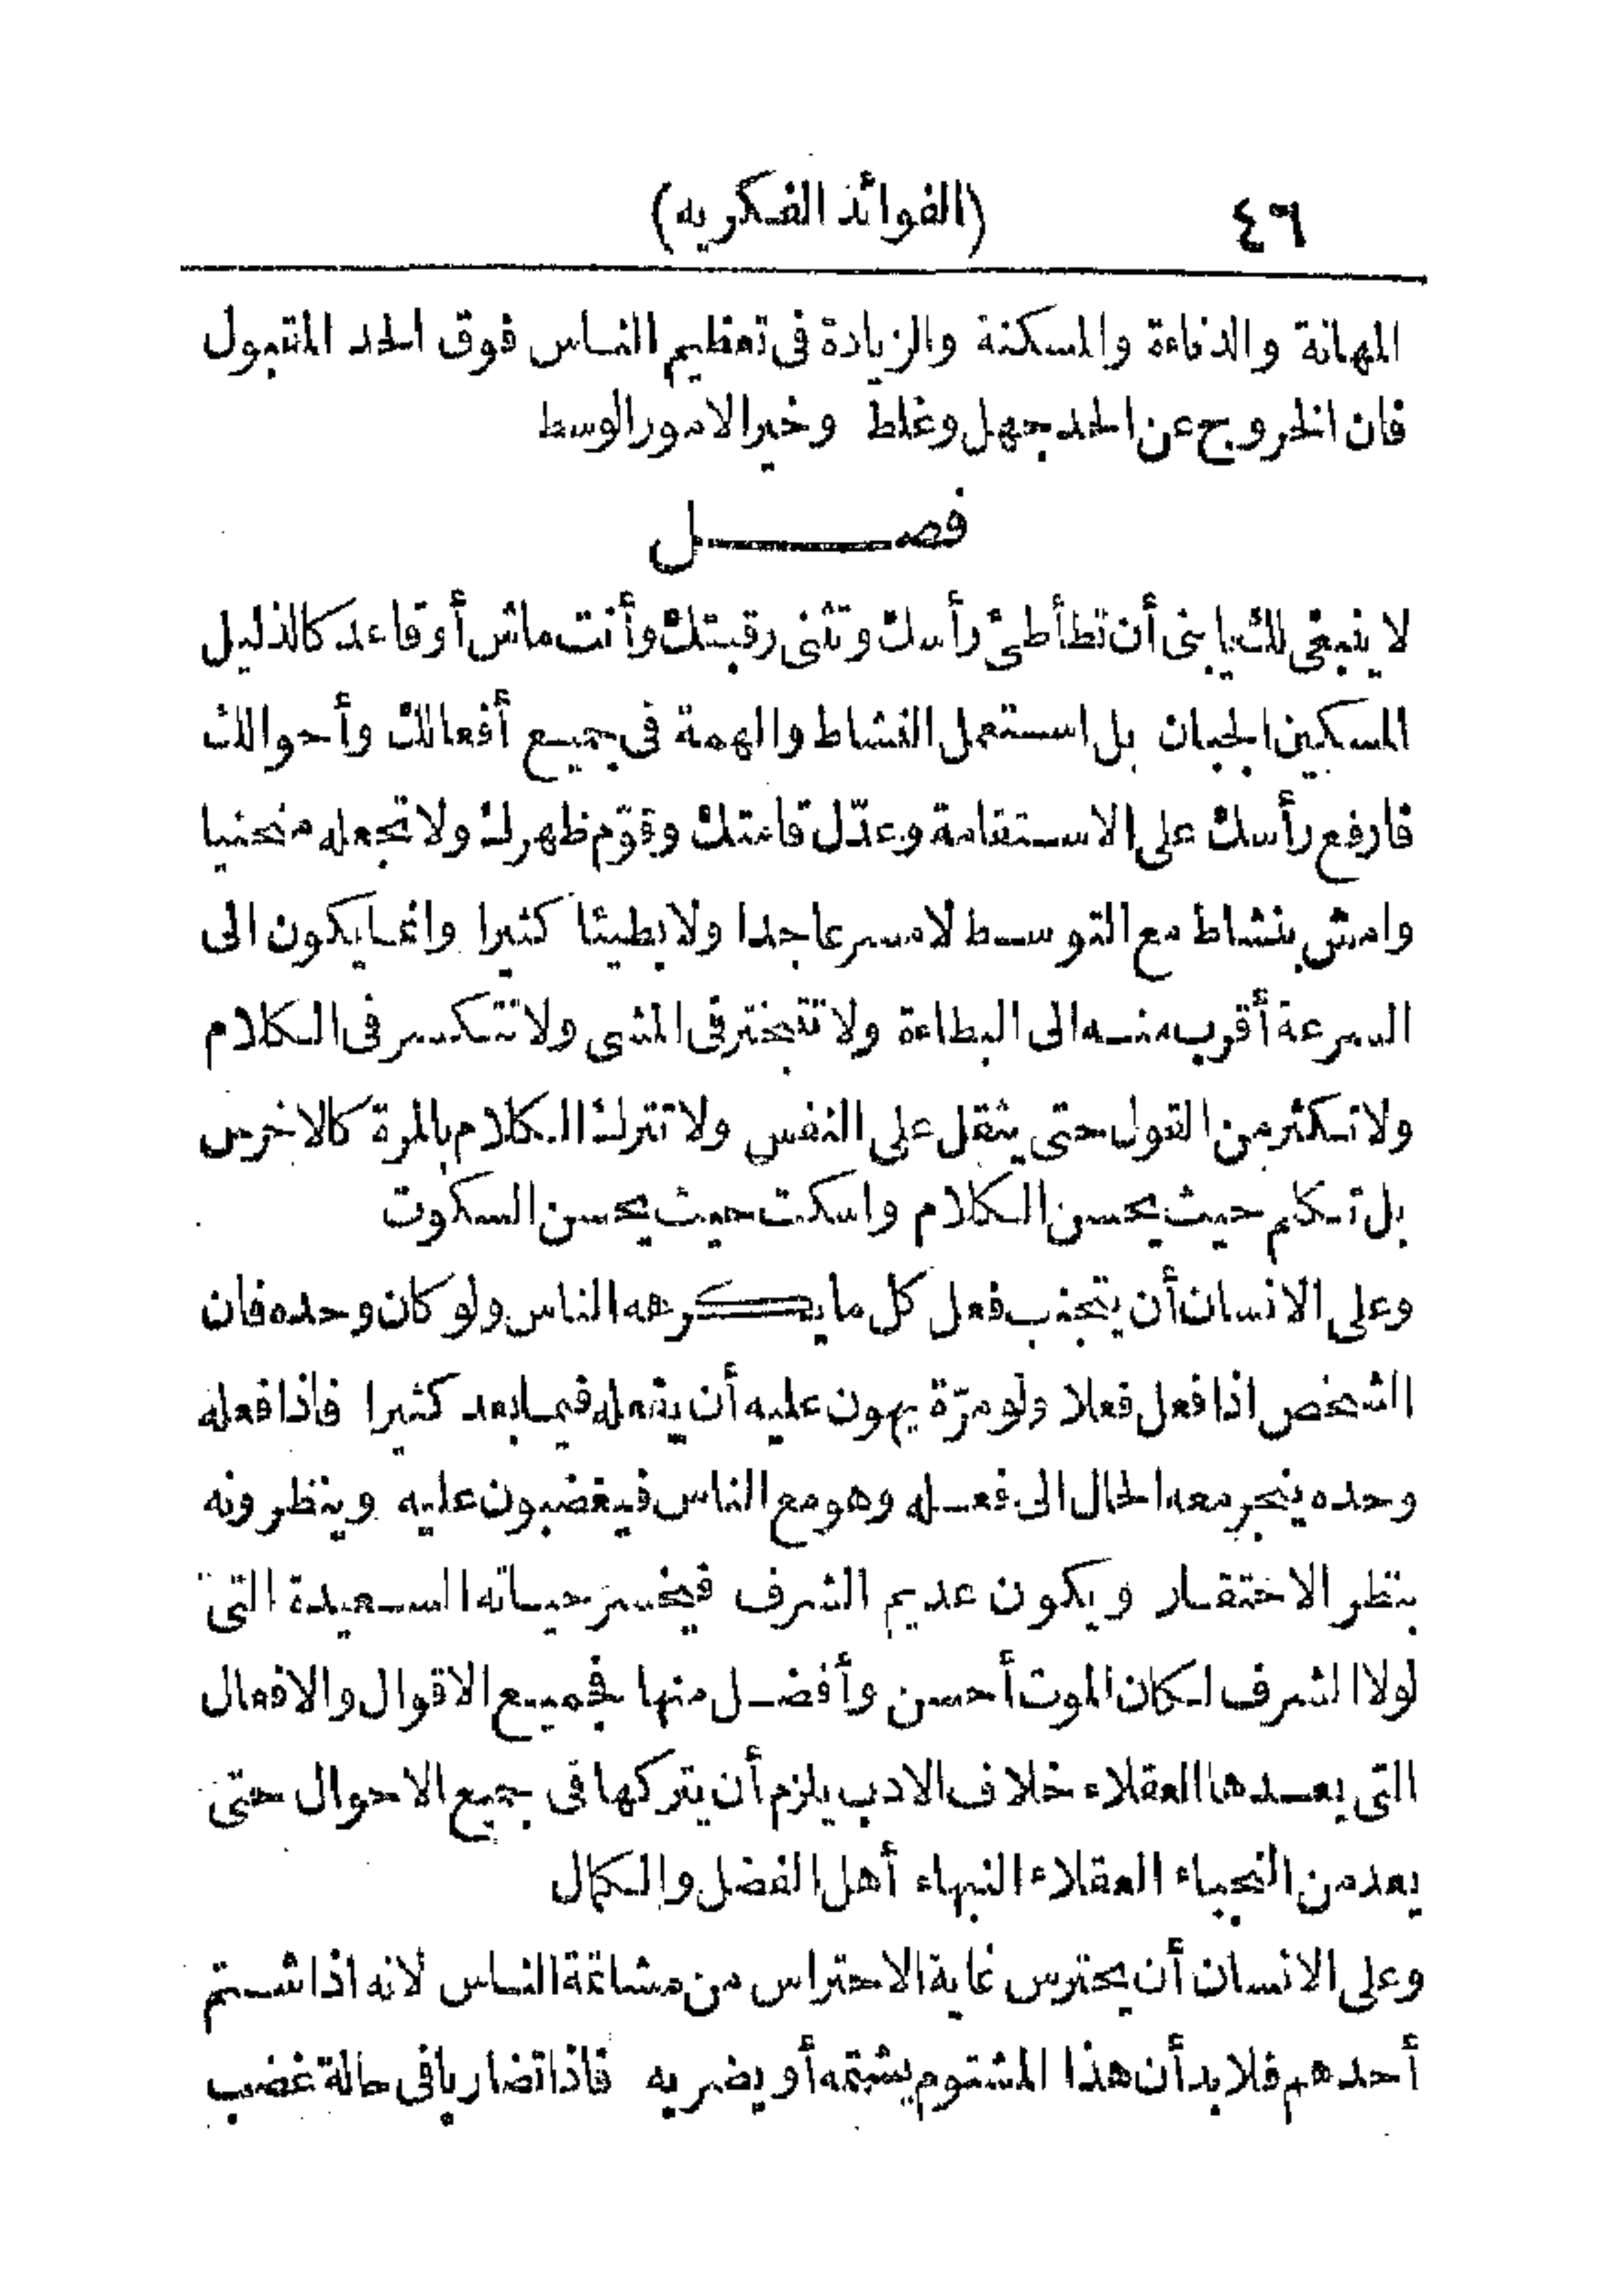 ٤٦ (الفوائد الفكريه)
المهانة والدناءة والمسكنة والزيادة فى تعظيم الناس فوق الحد المقبول
فان الخروج عن الحد جهل وغلط وخير الامور الوسط
فصل
لا ينبغى لك يا بنى أن تطأطئ رأسك وتثنى رقبتك وأنت ماش أو قاعد كالذليل
المسكين الجبان بل استعمل النشاط والهمة فى جميع أفعالك وأحوالك
فارفع رأسك على الاستقامة وعدّل قامتك وقوّم ظهرك ولا تجعله منحنيا
وامش بنشاط مع التوسط لا مسرعا جدا ولا بطيئا كثيرا وانما يكون الى
السرعة أقرب منه الى البطاءة ولا تتبختر فى المشى ولا تتكسر فى الكلام
ولا تكثر من القول حتى يثقل على النفس ولا تترك الكلام بالمرة كالاخرس
بل تكلم حيث يحسن الكلام واسكت حيث يحسن السكوت
وعلى الانسان أن يتجنب فعل كل ما يكرهه الناس ولو كان وحده فان
الشخص اذا فعل فعلا ولو مرّة يهون عليه أن يفعله فيما بعد كثيرا فاذا فعله
وحده ينجر معه الحال الى فعله وهو مع الناس فيغضبون عليه وينظرونه
بنظر الاحتقار ويكون عديم الشرف فيخسر حياته السعيدة التى
لولا الشرف لكان الموت أحسن وأفضل منها فجميع الاقوال والافعال
التى يعدها العقلاء خلاف الادب يلزم أن يتركها فى جميع الاحوال حتى
يعد من النجباء العقلاء النبهاء أهل الفضل والكمال
وعلى الانسان أن يحترس غاية الاحتراس من مشاتمة الناس لانه اذا شتم
أحدهم فلا بد أن هذا المشتوم يشتمه أو يضربه فاذا تضاربا فى حالة غضب